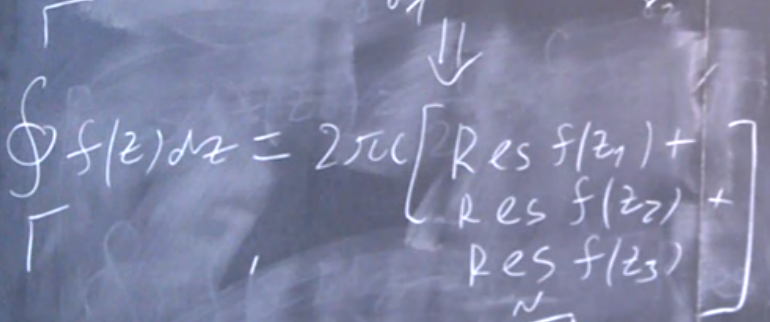 Γ
⇓
∮ f(z)dz = 2πi[ Res f(z₁) +
Res f(z₂) +
Γ Res f(z₃) ]
N